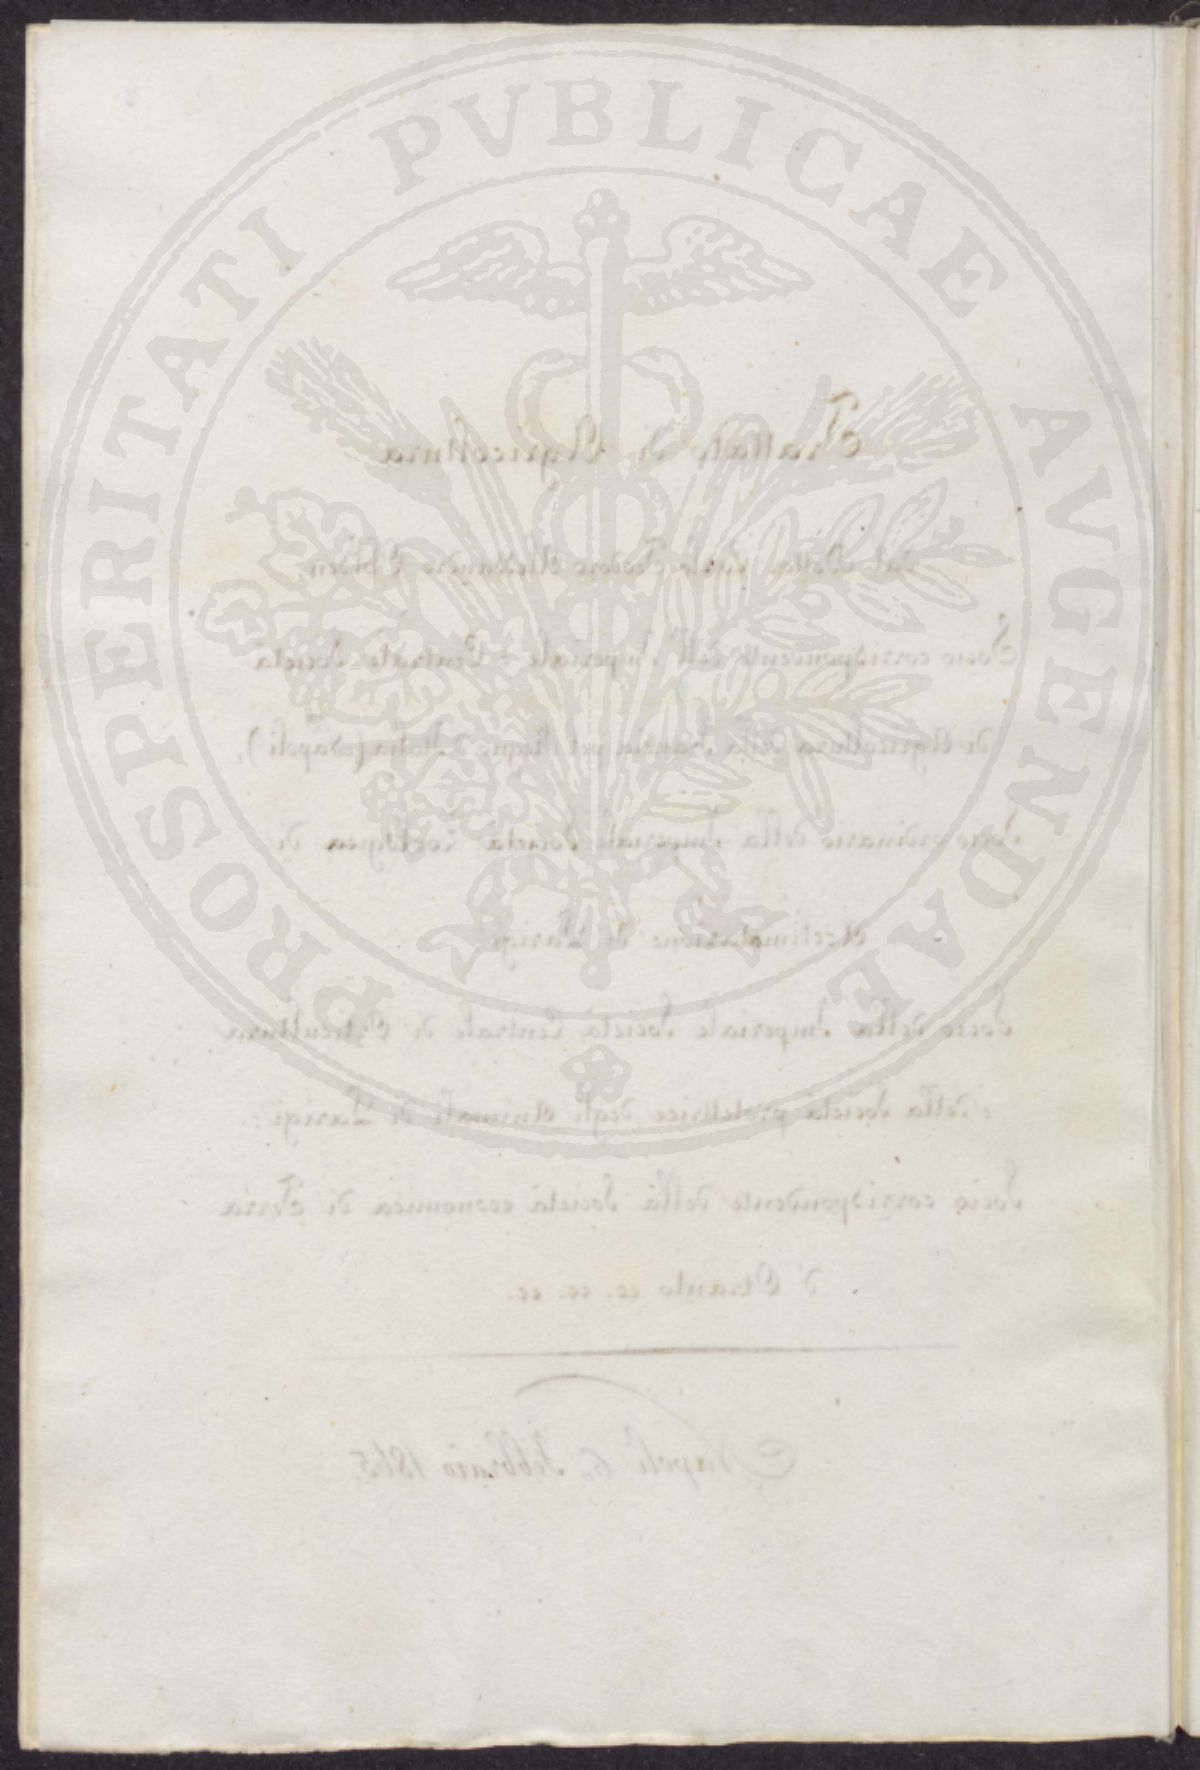 PROSPERITATI PVBLICAE AVGENDAE
Trattato di Agricoltura
dal Dottor Carlo Teodoro Alessandro
Socio corrispondente dell' Imperiale e Centrale Società
di Agricoltura della Francia nel Regno d'Italia (Napoli),
Socio ordinario della Imperiale Società Zoologica di
Acclimatazione di Parigi
Socio della Imperiale Società Centrale di Orticultura
e della Società protettrice degli Animali di Parigi:
Socio corrispondente della Società economica di Terra
d'Otranto ec. ec. ec.
Napoli 6 Febbraio 1865